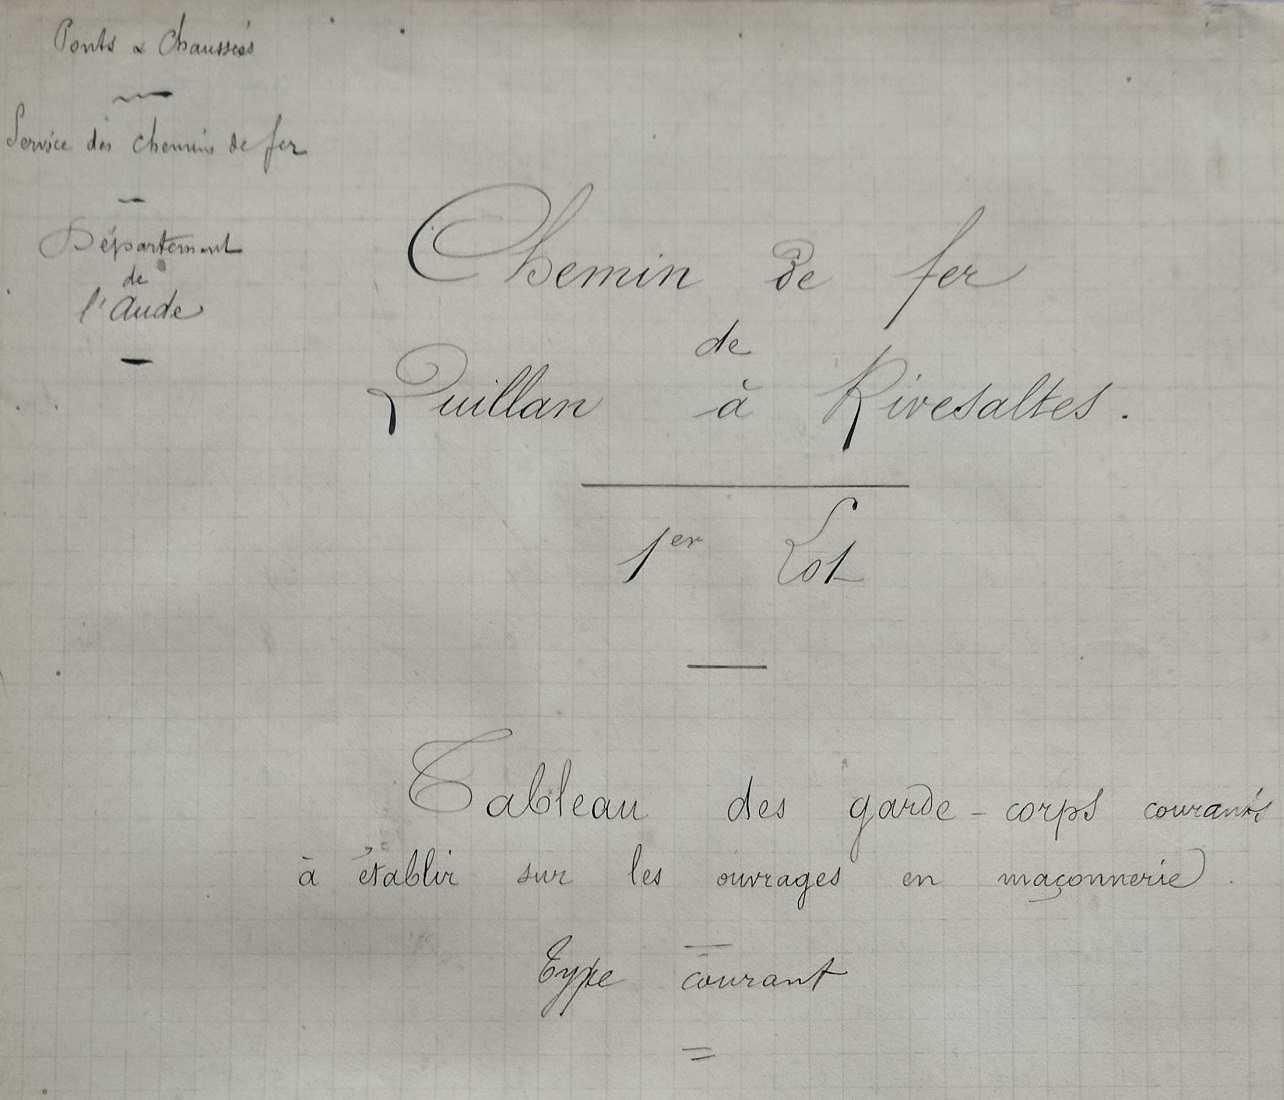 Ponts & Chaussées
Service des chemins de fer
Département
de
l'Aude
Chemin de fer
de
Quillan à Rivesaltes.
1er Lot
Tableau des garde-corps courants
à établir sur les ouvrages en maçonnerie.
Type courant